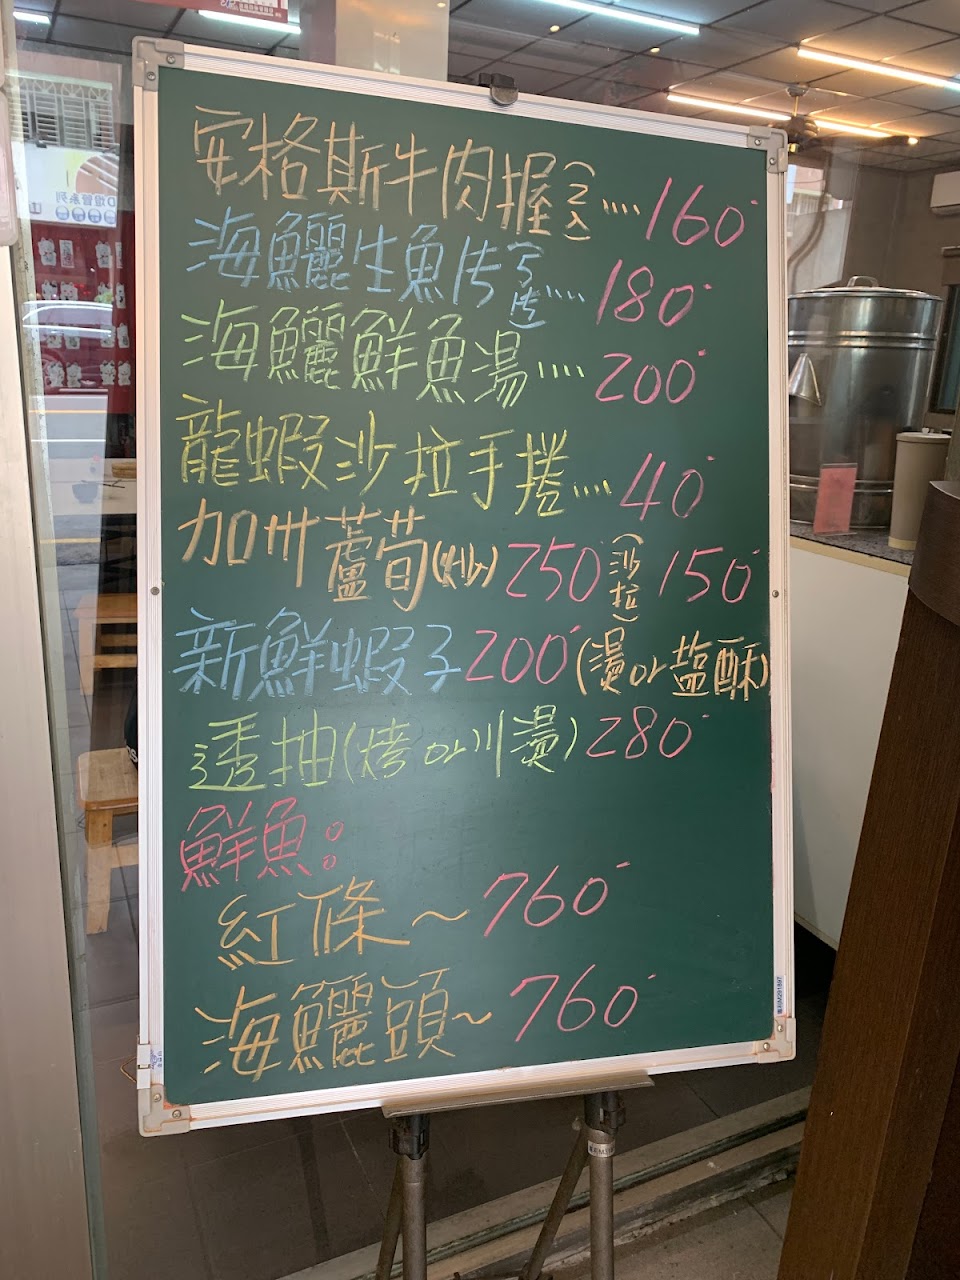 安格斯牛肉握(2入)....160
海鱺生魚片(5片)....180
海鱺鮮魚湯....200
龍蝦沙拉手捲....40
加州蘆筍(炒)250(沙拉)150
新鮮蝦子200(燙or塩酥)
透抽(烤or川燙)280
鮮魚:
紅條~760
海鱺頭~760